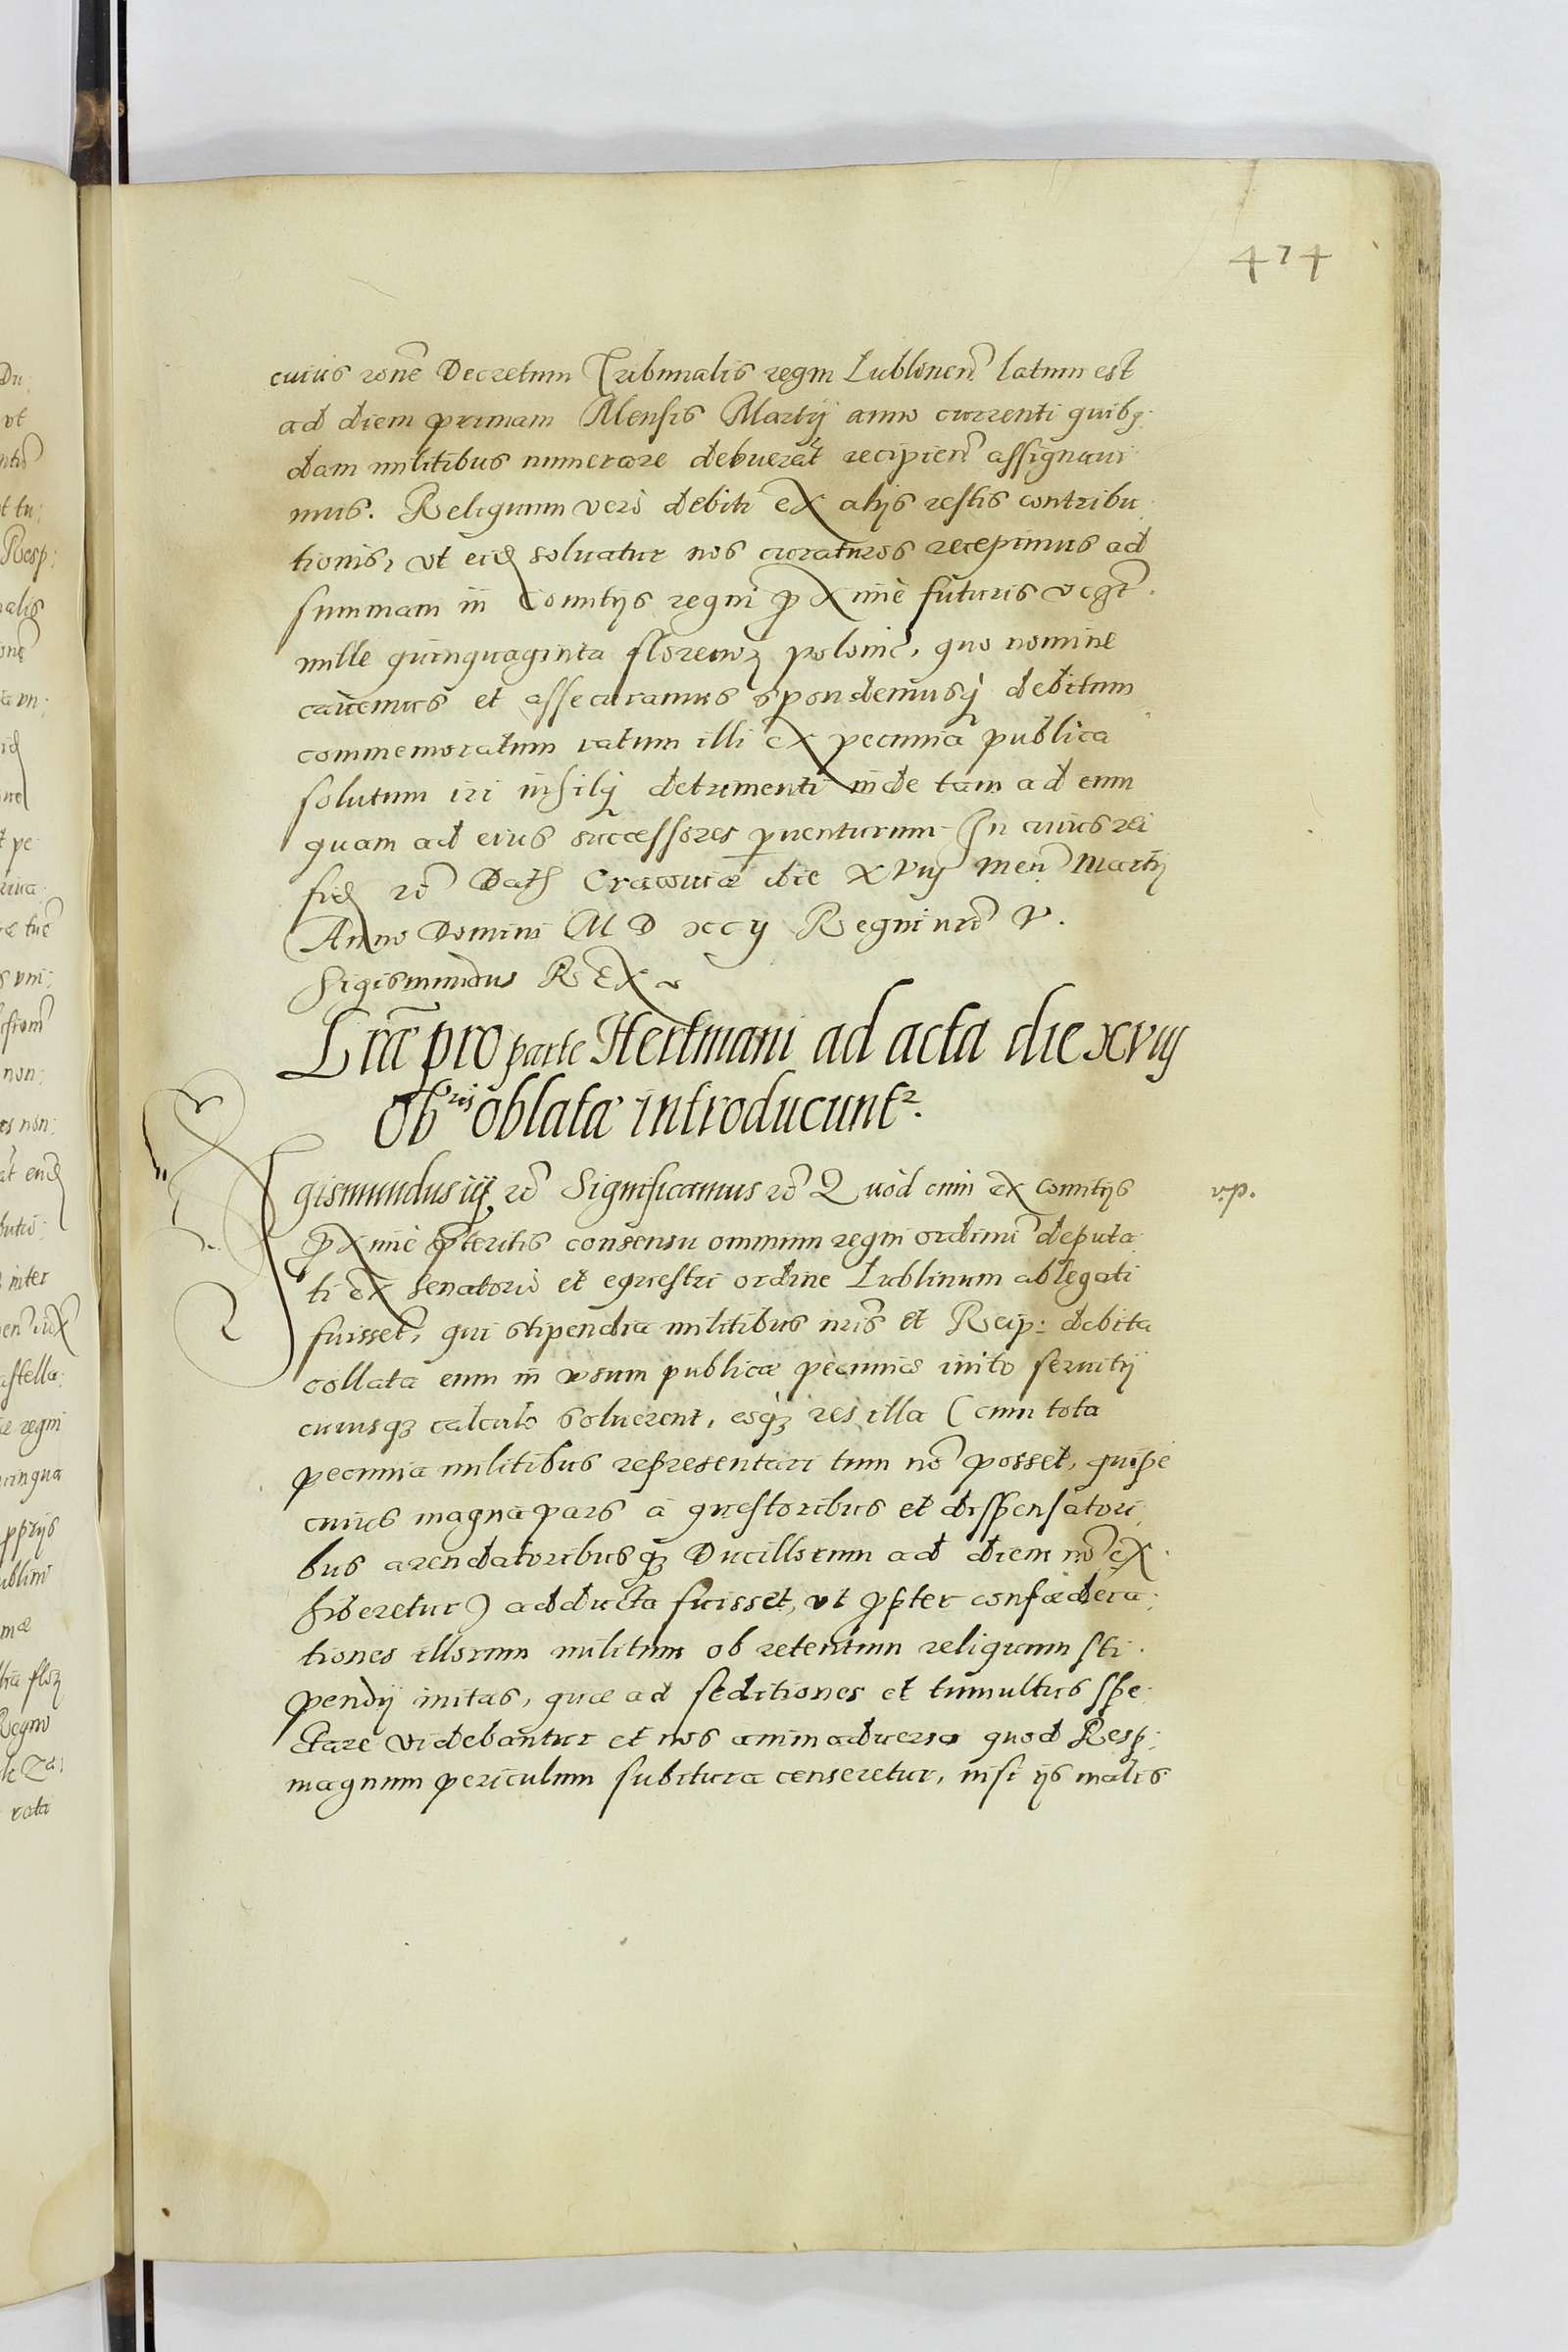 474
cuius rõne Decretum Tribunalis regni Lublinen̄ latum est
ad diem primam Mensis Martij anno currenti quibus:
dam militibus numerare debuerāt recipien̄ assignaui
mus. Reliquum verò debiti ex alijs restis contribu
tionis, vt eid soluatur nos curaturos recepimus ad
summam in Comitijs regni proxime futuris
mille quinquaginta florenoȝ polonic, quo nomine
cauemus et assecuramus spondemusq debitum
commemoratum ratum illi ex pecunia publica
solutum iri nihilq detrimenti inde tam ad eum
quam ad eius successores peruenturum. In cuius rei
fid rc̃ Dat Cracouiæ die XVIIJ men̄ Martij
Anno Domini M D XCIJ Regni nrī V.
Sigismundus REX
Lrã pro parte Hertmani ad acta die xviij
Ob oblatæ introducuntr.
Sigismundus iij rc̃ Significamus rc̃ Quod cum ex comitijs
proxime preteritis consensu omnium regni ordinū deputa:
ti ex senatorio et equestri ordine Lublinum ablegati
fuissēt, qui stipendia militibus nrīs et Reip: debita
collata eum in vsum publicæ pecuniæ inito seruitij
cuiusqȝ calculo soluerent, eoqȝ res illa (cum tota
pecunia militibus repræsentari tum nō posset, quipe
cuius magna pars à questoribus et dispensatori:
bus arendatoribusqȝ Ducillorum ad diem nō ex
hiberetur) adducta fuisset, vt propter confœdera:
tiones illorum militum ob retentum reliquum sti
pendij initas, quæ ad seditiones et tumultus spe:
ctare videbantur et nos animaduerso quod Resp:
magnum periculum subitura censeretur, nisi ijs malis
v.p.